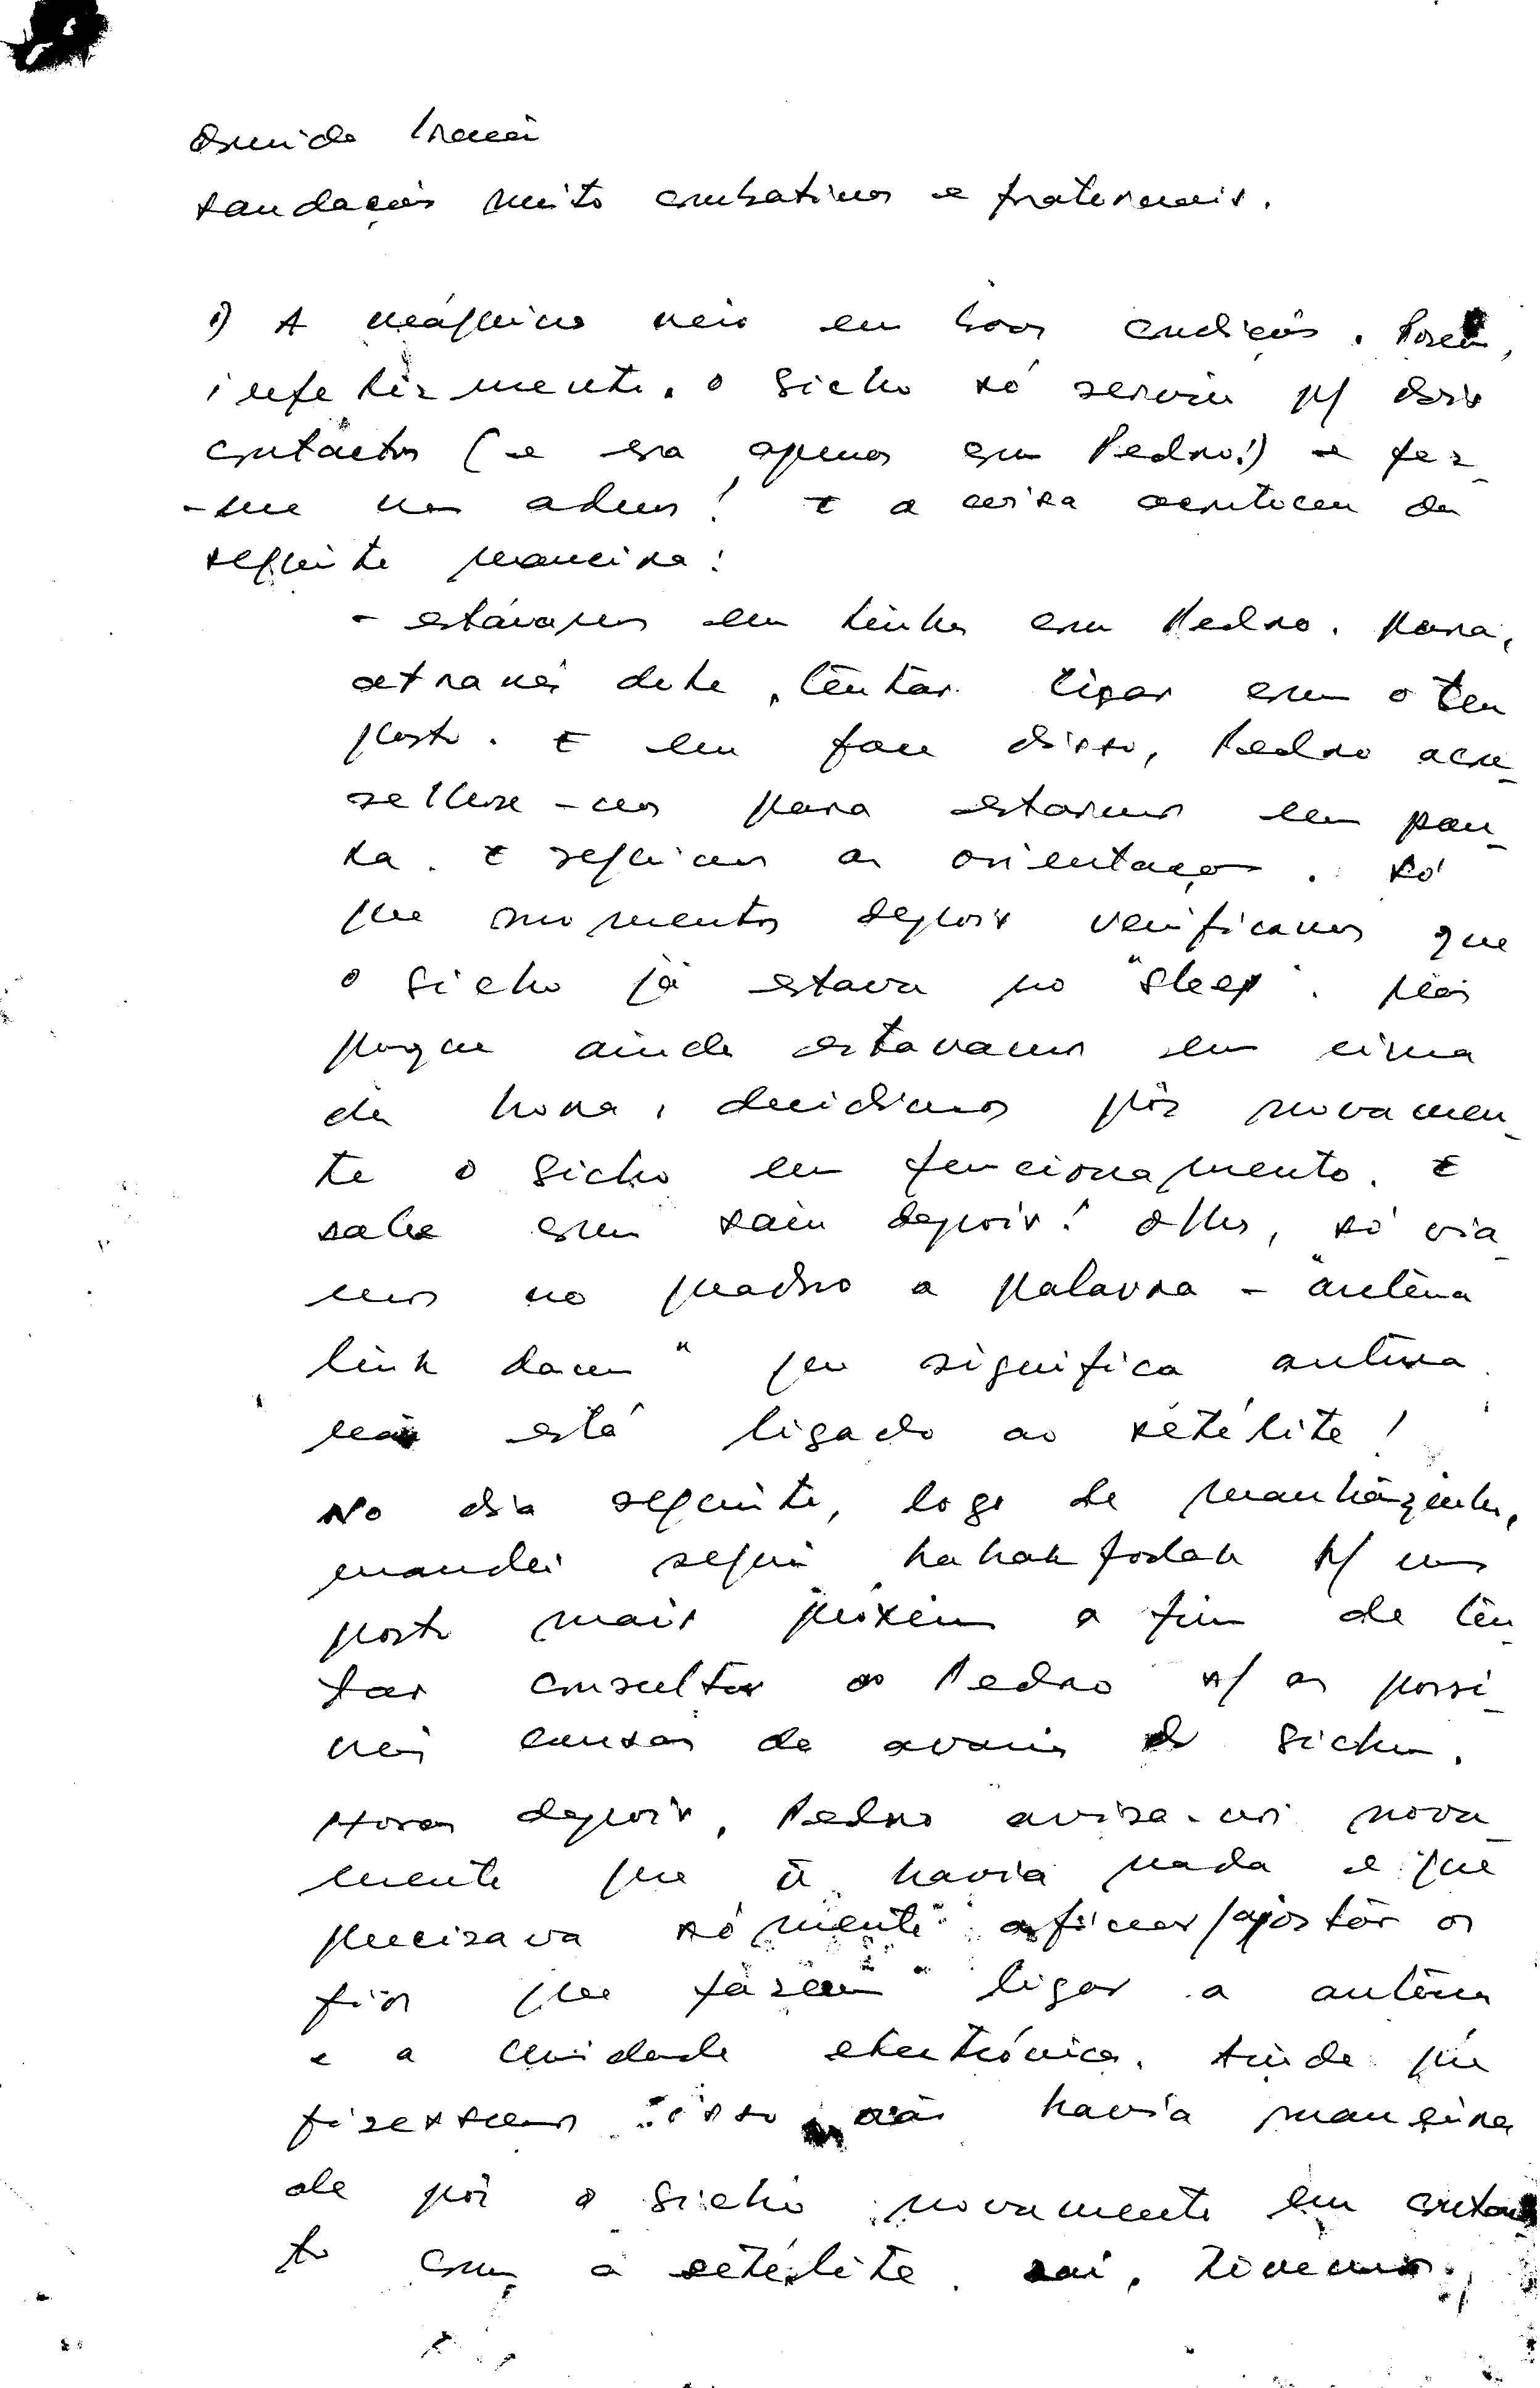 Querido Irmão
saudações muito combativas e fraternais.
1) A máquina veio em boas condições. Porém,
infelizmente, o bicho só serviu p/ dois
contactos (e era apenas com Pedro!) e fez-
-me um adeus! E a coisa aconteceu da
seguinte maneira:
- estávamos em linha com Pedro. Para,
através dele, tentar ligar com o teu
posto. E em face disso, Pedro acon-
selhou-nos para estarmos em pau-
sa. E seguimos as orientações. Só
que momentos depois verificamos que
o bicho já estava no "sleep". Mas
porque ainda estavamos em cima
da hora, decidimos pôr novamen-
te o bicho em funcionamento. E
sabe como saiu depois? Olha, só via-
mos no quadro a palavra - "antena
link down" que significa antena
não está ligado ao satélite!
No dia seguinte, logo de manhãzinha,
mandei seguir hahak fodak p/ um
posto mais próximo a fim de ten-
tar consultar ao Pedro s/ as possí-
veis causas da avaria do bicho.
Horas depois, Pedro avisa-nos nova-
mente que ñ havia nada e que
precisava sómente afinar/ajustar os
fios que fazem ligar a antena
e a unidade electrónica. Ainda que
fizessemos isso não havia maneira
de pôr o bicho novamente em contac-
to com o satélite. Daí, tivemos